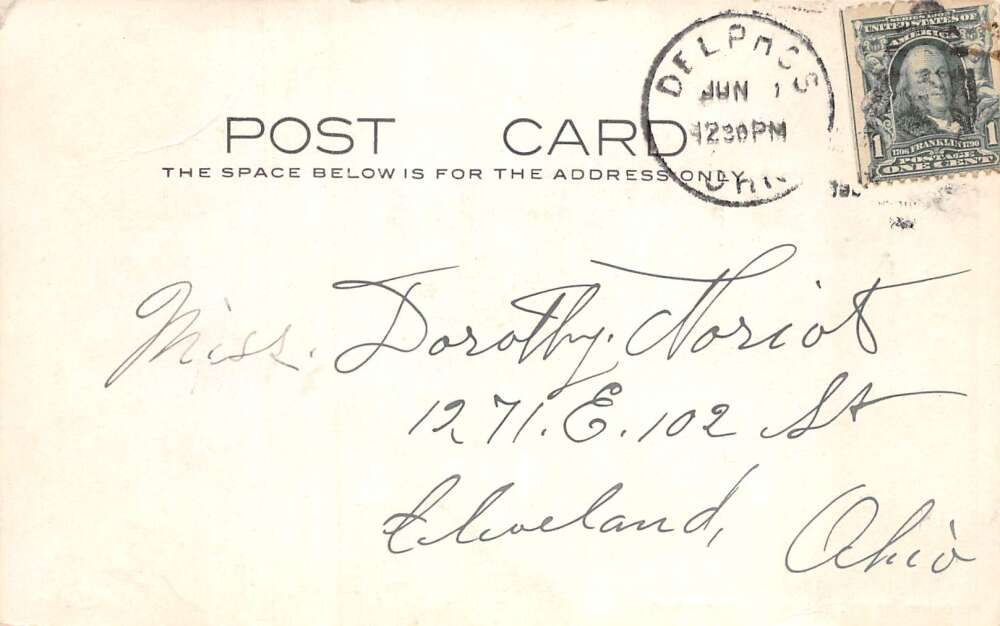 DELPHOS
JUN 1
1230PM
OHIO
SERIES 1902
UNITED STATES OF
AMERICA
1706 FRANKLIN 1790
1 POSTAGE 1
ONE CENT
POST CARD
THE SPACE BELOW IS FOR THE ADDRESS ONLY
Miss. Dorothy. Noriot
1271. E. 102 St
Cleveland, Ohio